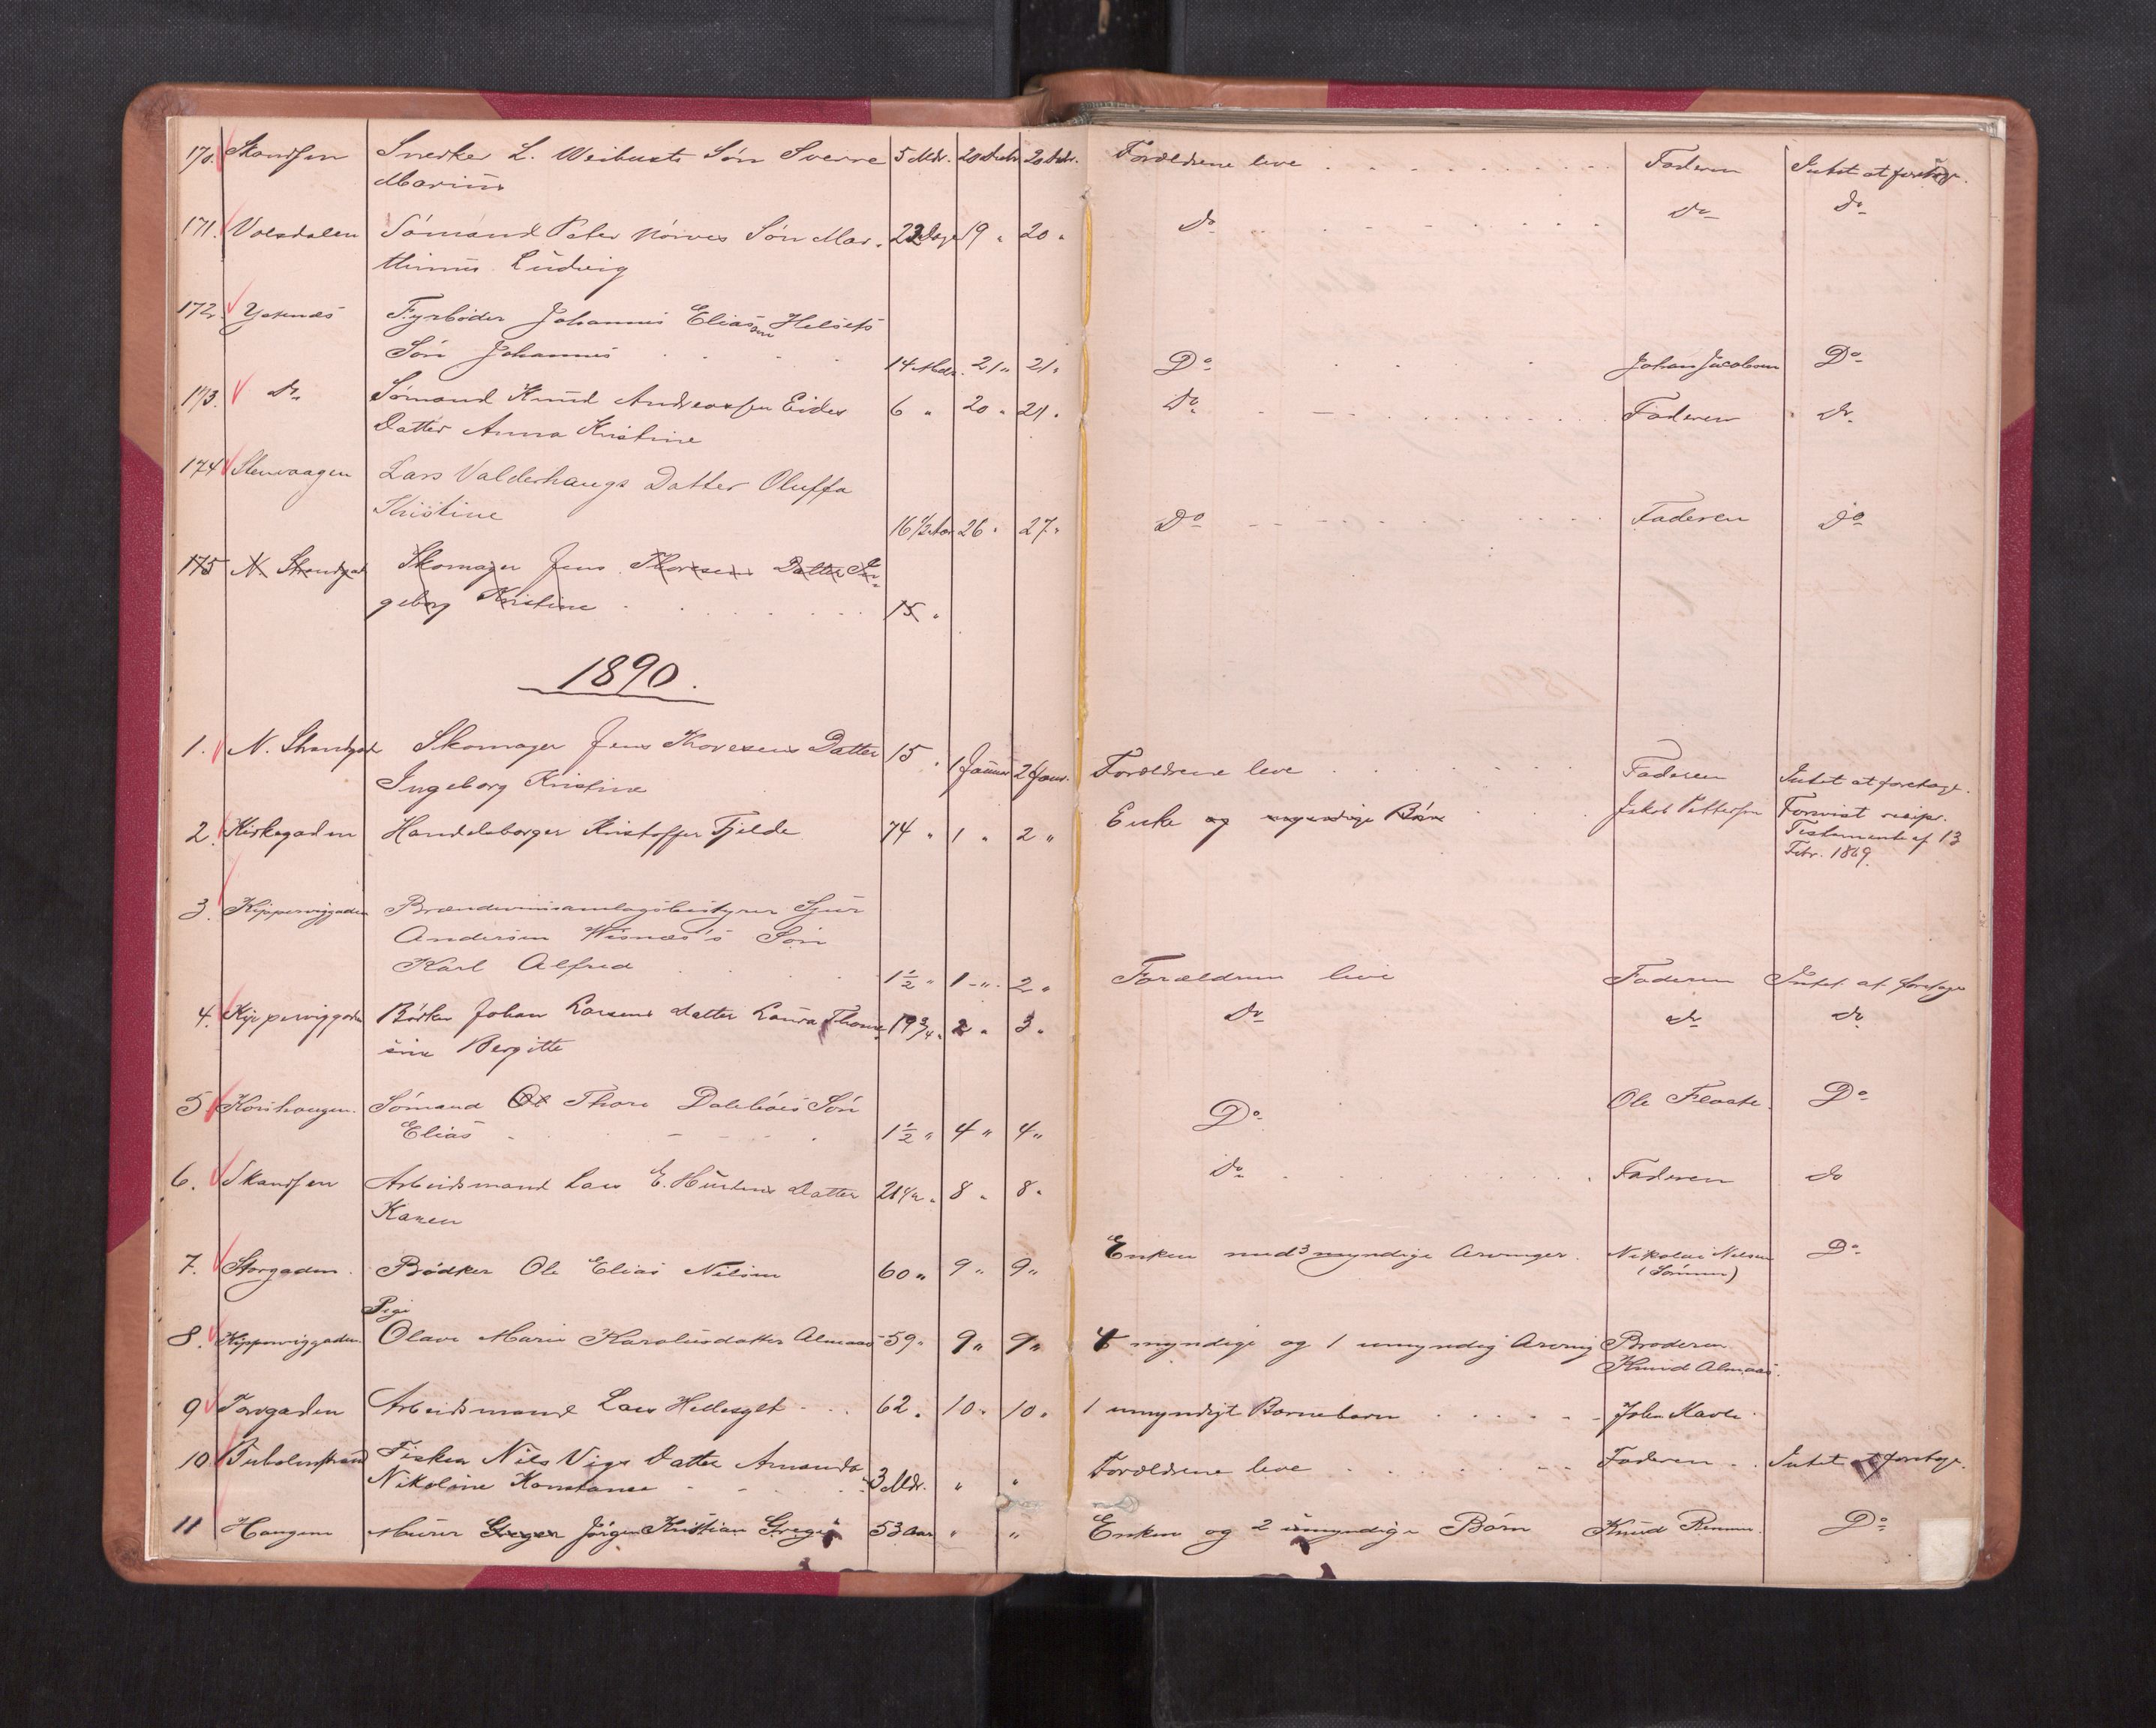 170. Skandsen Snedker L. Weibusts Søn Sverre 5 Mdr. 20 Decbr. 20 Decbr. Forældrene leve Faderen Intet at foretage.
Marius
171. Volsdalen Sømand Peter Nørves Søn Mar- 22 Dage 19 " 20 " Do Do Do
thinus Ludvig
172. Fyrbøder Johannes Eliassen Helsets
Søn Johannes 14 Mdr. 21 " 21 " Do Johan Jacobsen Do
173. Do Sømand Knud Andreassen Eides 6 " 20 " 21 " Do Faderen Do
Datter Anna Kristine
174 Stenvaagen Lars Valderhaugs Datter Oluffa
Kristine 16 1/2 Aar 26 " 27 " Do Faderen Do
175 N. Strandgad Skomager Jens Thoresens Datter In-
geborg Kristine 15 "
1890.
1. N. Strandgad Skomager Jens Thoresens Datter 15 " 1 Januar 2 Janr. Forældrene leve Faderen Intet at foretage.
Ingeborg Kristine
2. Kirkegaden Handelsborger Kristoffer Fjelde 74 " 1 " 2 " Enke og myndige Børn Jakob Pettersen Forevist recipr.
Testamente af 13
Febr. 1869.
3. Kipperviggaden Brændevinsamlagsbestyrer Sjur
Andersen Wisnæs's Søn
Karl Alfred 1 1/2 " 1 " 2 " Forældrene leve Faderen Intet at foretage
4. Kipperviggaden Johan Larsens datter Laura Thom- 19 3/4 " 2 " 3 " Do Do Do
sine Bergitte
5. Korshaugen. Sømand Ol Thore Dalebøes Søn Ole Do
Elias 1 1/2 " 4 " 4 " Do
6. Skandsen Arbeidsmand Lars E. datter 21 1/2 " 8 " 8 " Do Faderen do
Karen
7. Storgaden Bødker Ole Elias Nilsen 60 " 9 " 9 " Enken med 3 myndige Arvinger. Nikolai Nilsen Do
(Sønnen)
Pige
8. Kipperviggaden Olave Marie Karolusdatter Almaas 59 " 9 " 9 " 4 myndige og 1 umyndig Arving Broderen
Knud Almaas.
9 Torvgaden Arbeidsmand Lars Hellesylt 62 " 10 " 10 " 1 umyndigt Barnebarn
10 Fisker Nils Vigs Datter Amanda
Nikoline Konstanse 3 Mdr. " " Forældrene leve Faderen Intet at foretage.
11 Haugen Murer Gregor Jørgen Kristian 53 Aar " " Enken og 2 umyndige Børn Knud Do